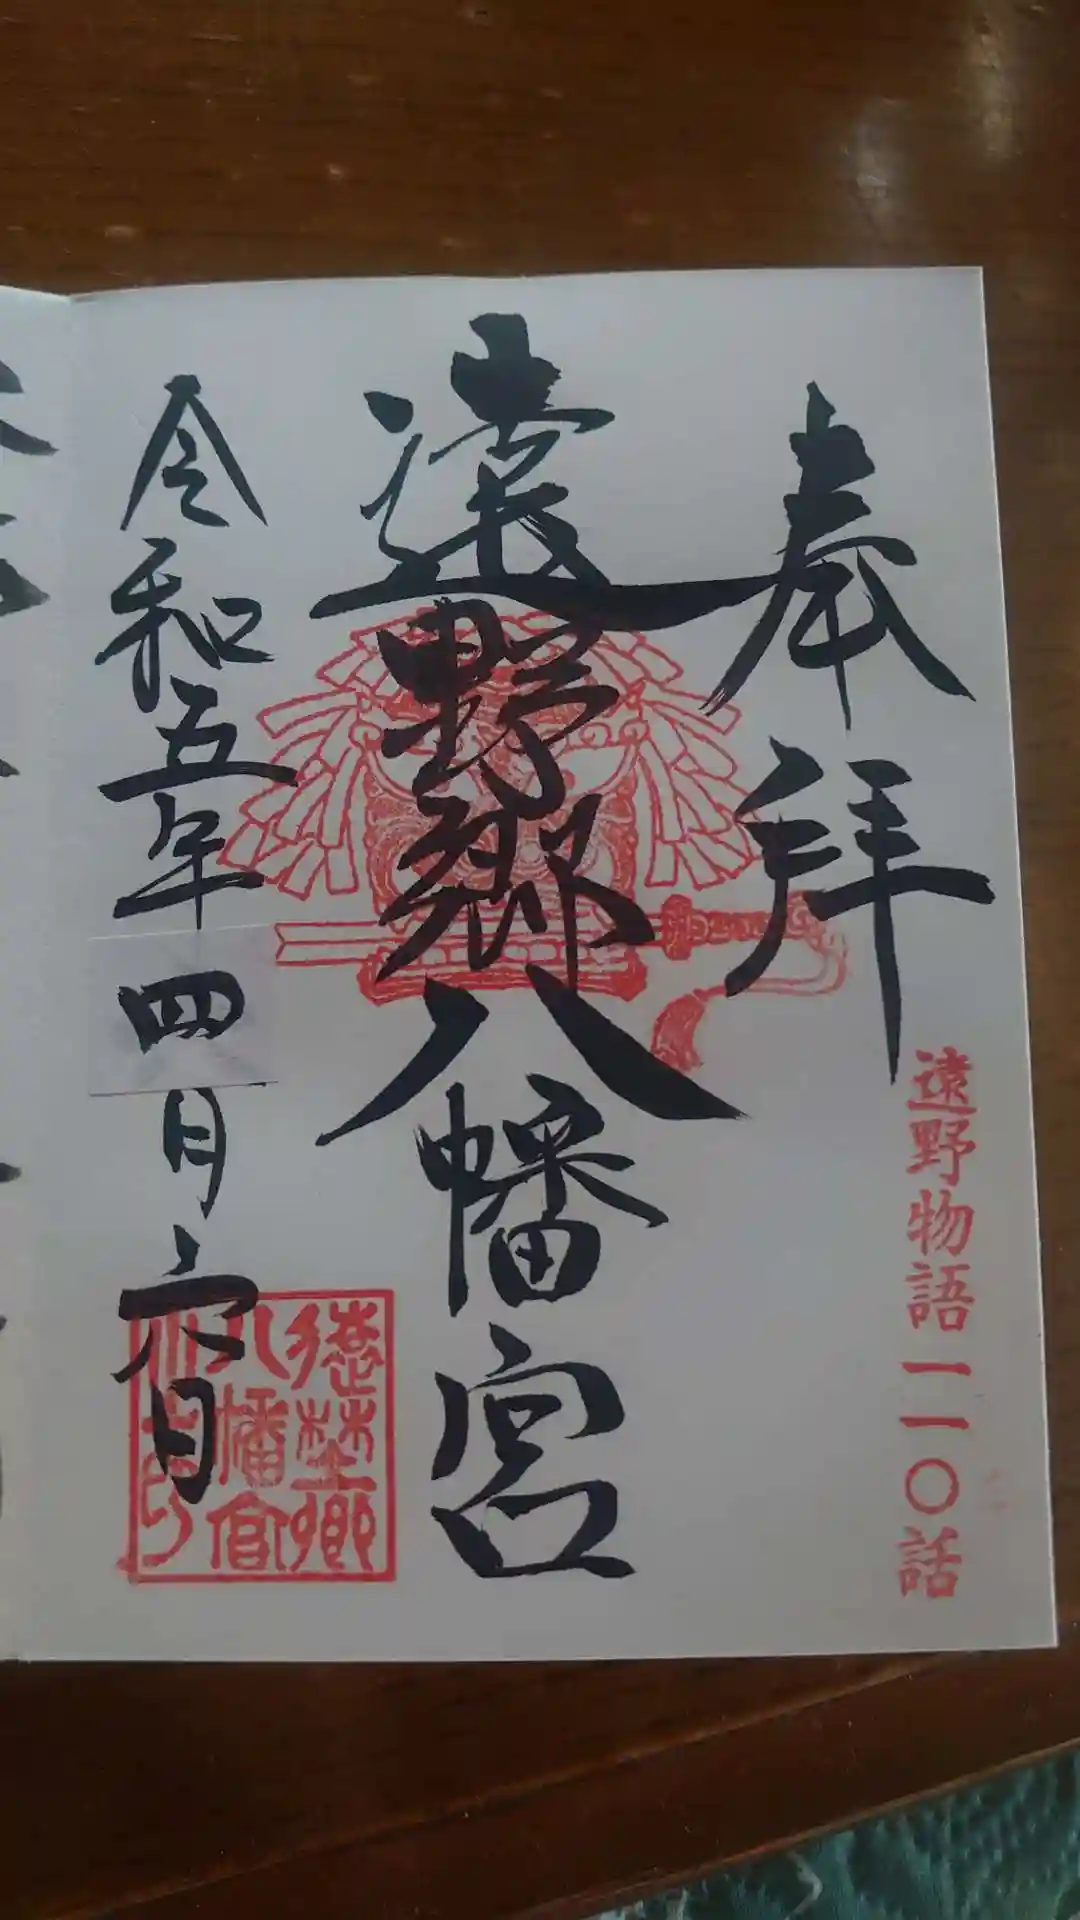 奉拝
遠野物語一一〇話
遠野郷八幡宮
令和五年四月六日
遠野郷
八幡宮